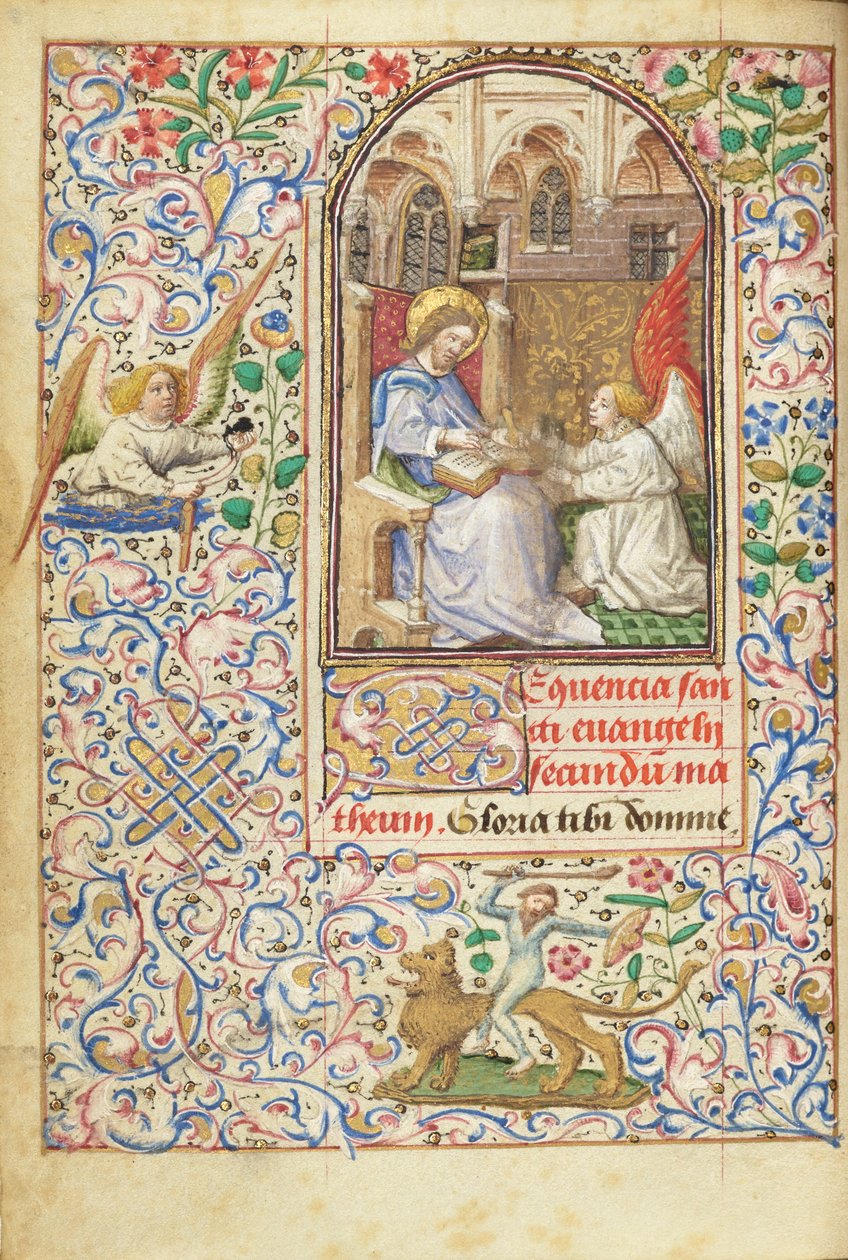 Sequencia san
cti euangelij
secundū ma
theum. Gloria tibi domine.